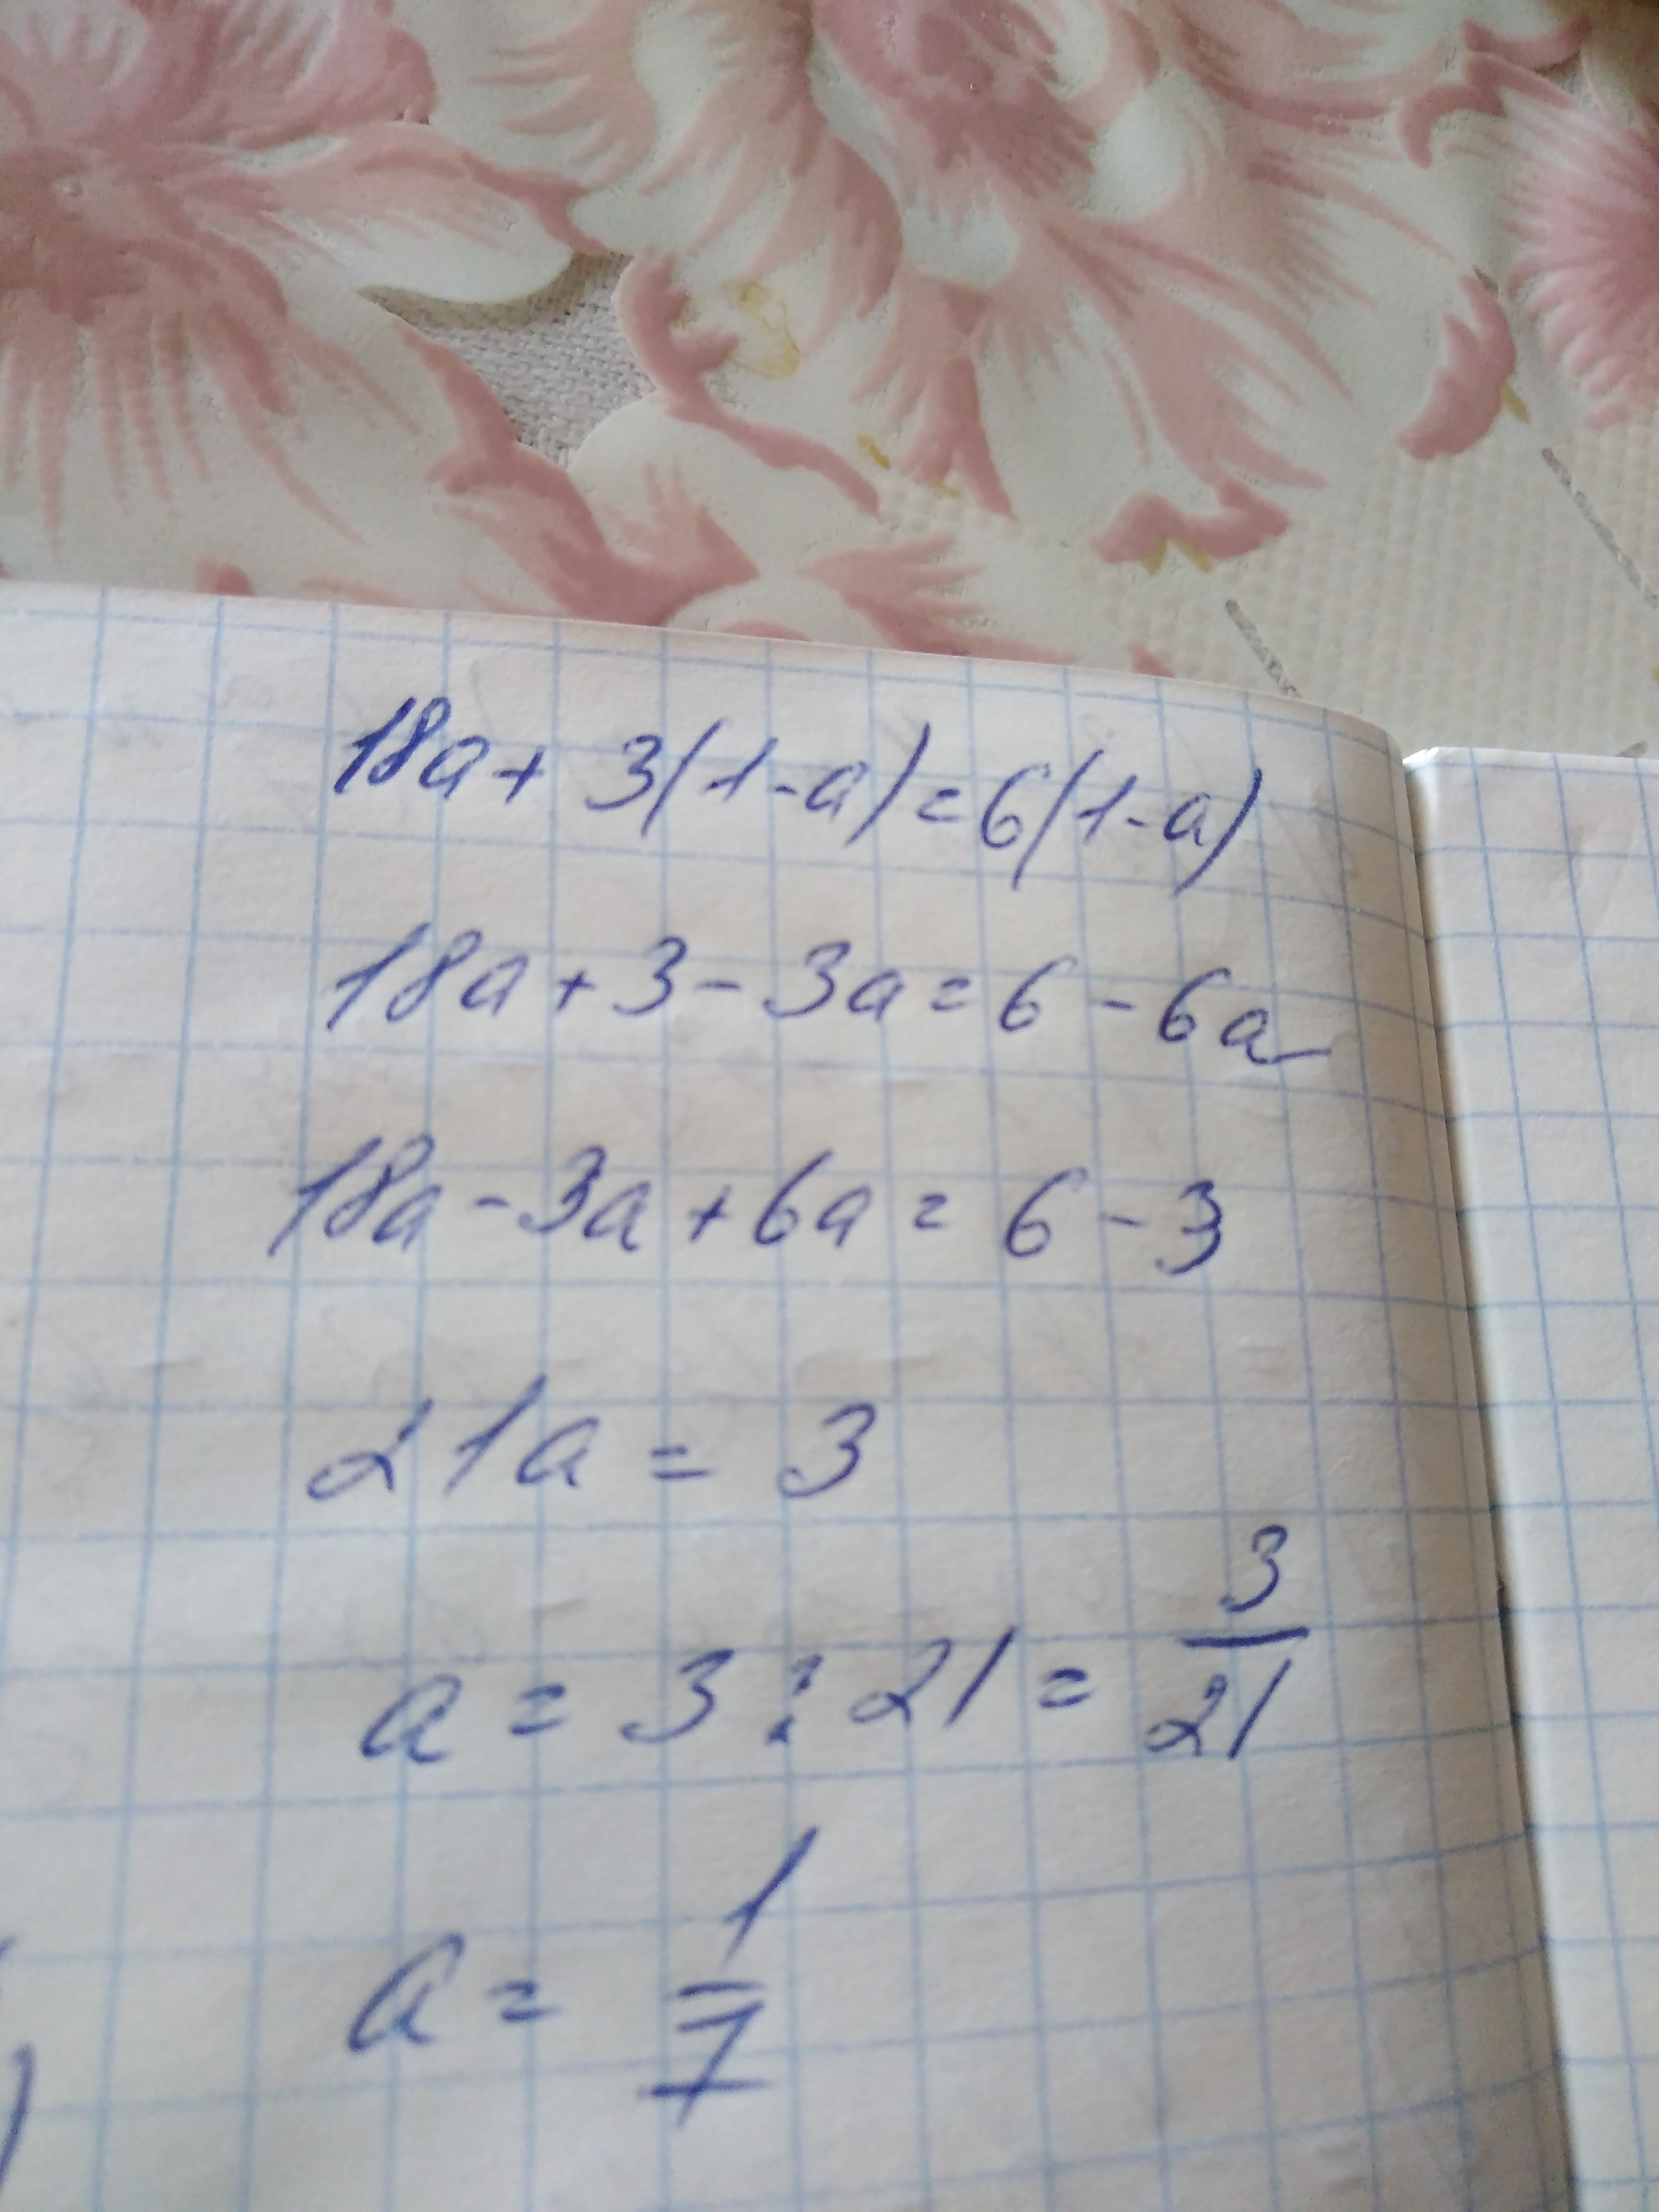 18a + 3(1-a) = 6(1-a)
18a + 3 - 3a = 6 - 6a
18a - 3a + 6a = 6 - 3
21a = 3
a = 3 : 21 = 3/21
a = 1/7